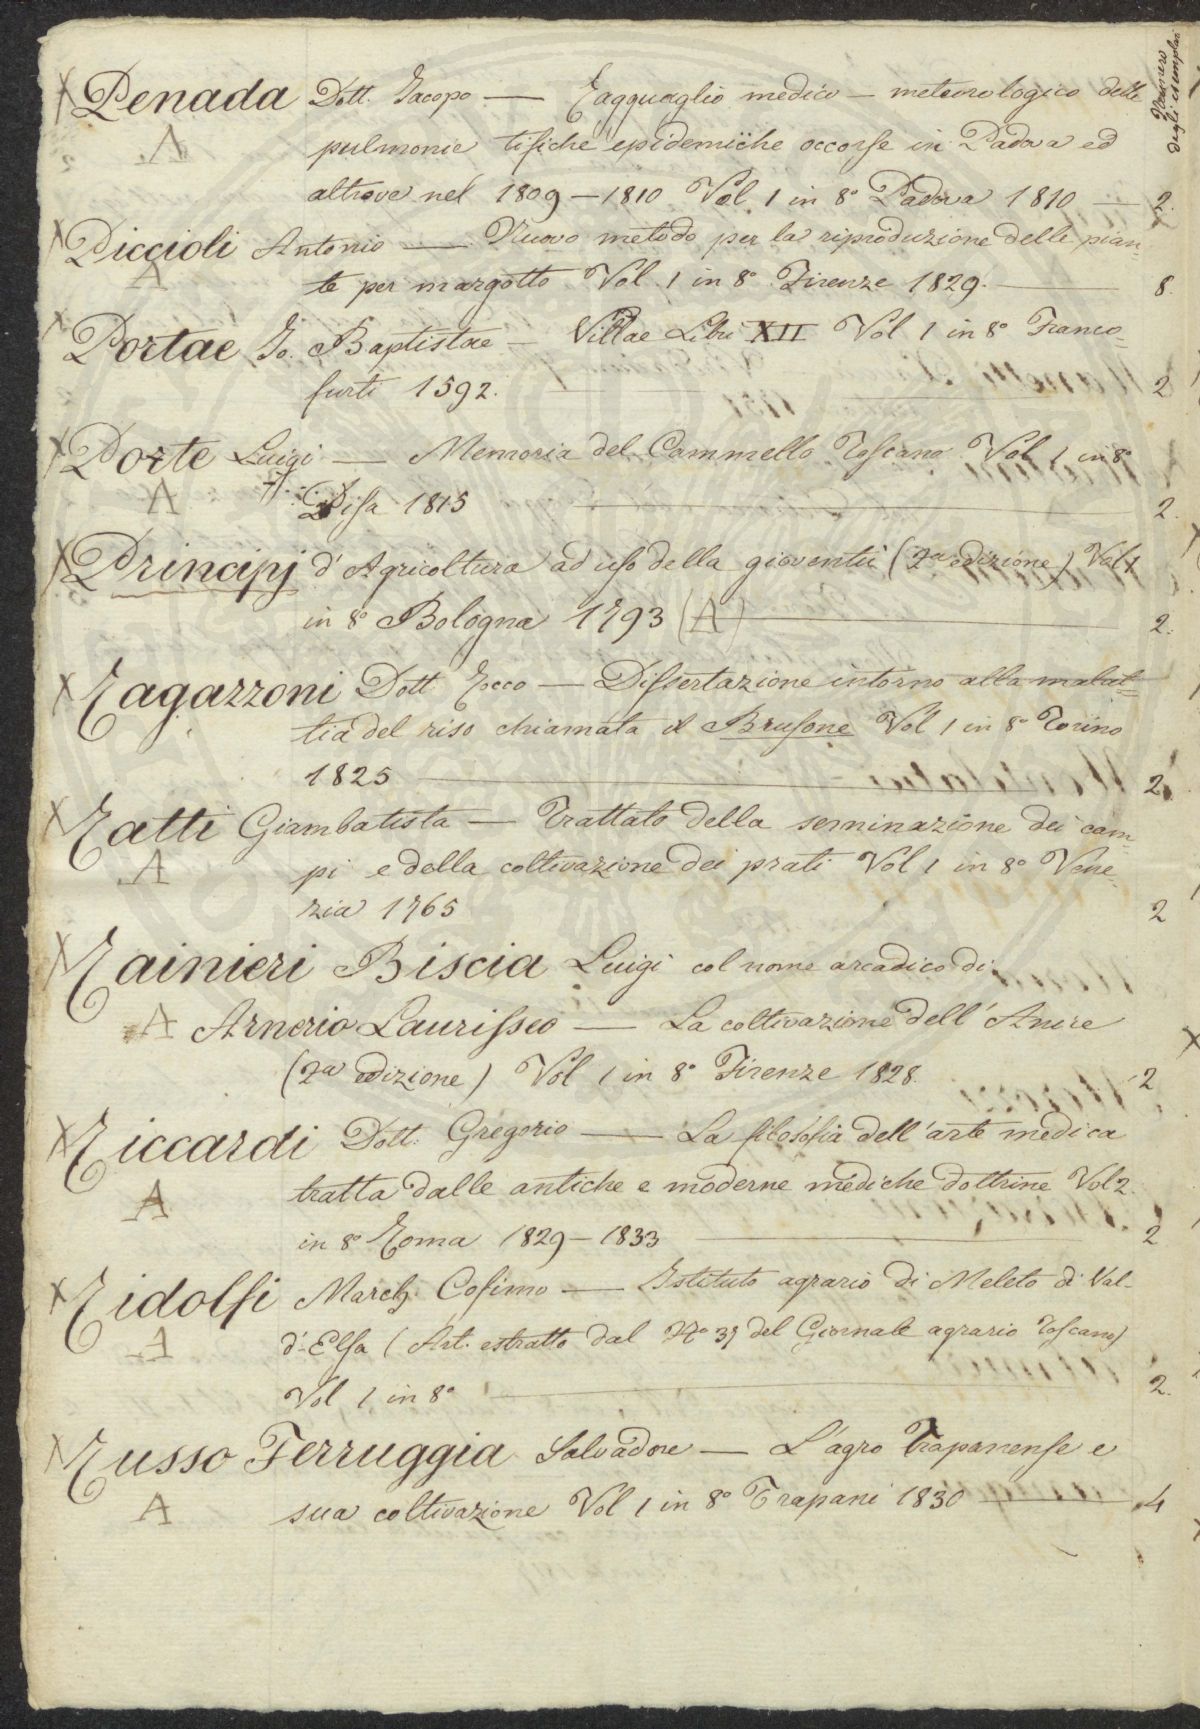 Numero degli esemplari
X Penada Dott. Jacopo — Ragguaglio medico-meteorologico delle
A pulmonie tisiche epidemiche occorse in Padova ed
altrove nel 1809-1810 Vol. 1 in 8° Padova 1810 — 2.
X Piccioli Antonio — Nuovo metodo per la riproduzione delle pian=
A te per margotto Vol. 1 in 8° Firenze 1829. — 8.
X Portae Jo. Baptistae — Villae Libri XII Vol 1 in 8° Franco=
furti 1592. — 2
X Porte Luigi — Memoria del Cammello Toscano Vol 1 in 8°
A Pisa 1815 — 2.
X Principj d'Agricoltura ad uso della gioventù (2ª edizione) Vol 1
in 8° Bologna 1793 (A) — 2.
X Ragazzoni Dott. Rocco — Dissertazione intorno alla malat=
tia del riso chiamata il Brusone Vol 1 in 8° Torino
1825 — 2.
X Ratti Giambatista — Trattato della seminazione dei cam=
A pi e della coltivazione dei prati Vol 1 in 8° Vene=
zia 1765 2
X Rainieri Biscia Luigi col nome arcadico di
A Arnerio Laurisseo — La coltivazione dell'Anice
(2ª edizione) Vol 1 in 8° Firenze 1828. 2
X Riccardi Dott. Gregorio — La filosofia dell'arte medica
A tratta dalle antiche e moderne mediche dottrine Vol 2.
in 8° Roma 1829-1833 — 2
X Ridolfi March. Cosimo — Istituto agrario di Meleto di Val-
A d'Elsa (Art. estratto dal N° 39 del Giornale agrario Toscano)
Vol 1 in 8° — 2.
X Russo Ferruggia Salvadore — L'agro Trapanense e
A sua coltivazione Vol 1 in 8° Trapani 1830 — 4